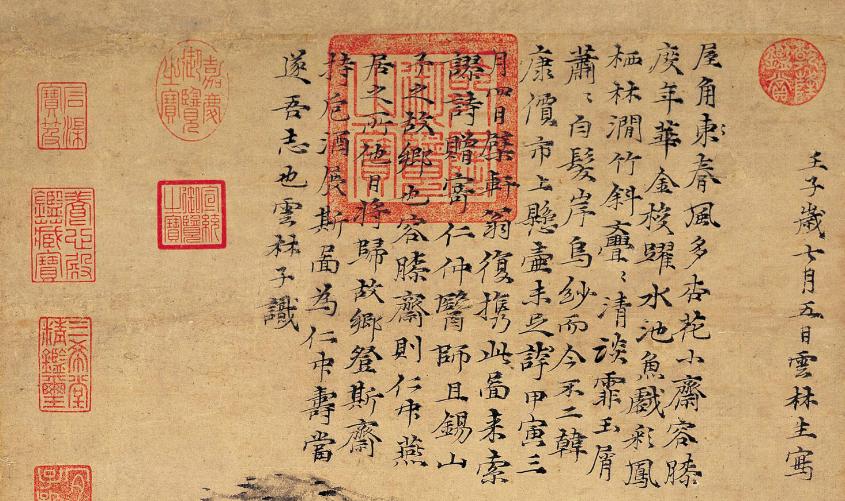 壬子歲七月五日雲林生寫
屋角東春風多杏花小齋容膝
度年華金梭躍水池魚戲彩鳳
栖林澗竹斜亹〻清談霏玉屑
蕭〻白髮岸烏紗而今不二韓
康價市上懸壺未足誇甲寅三
月四日檗軒翁復携此圖来索
謬詩贈寄仁仲醫師且錫山
予之故鄉也容膝齋則仁中燕
居之所他日將歸故鄉登斯齋
持卮酒展斯圖為仁中壽當
遂吾志也雲林子識
乾隆御覽之寶
嘉慶御覽之寶
宣統御覽之寶
石渠寶笈
養心殿鑑藏寶
三希堂精鑑璽